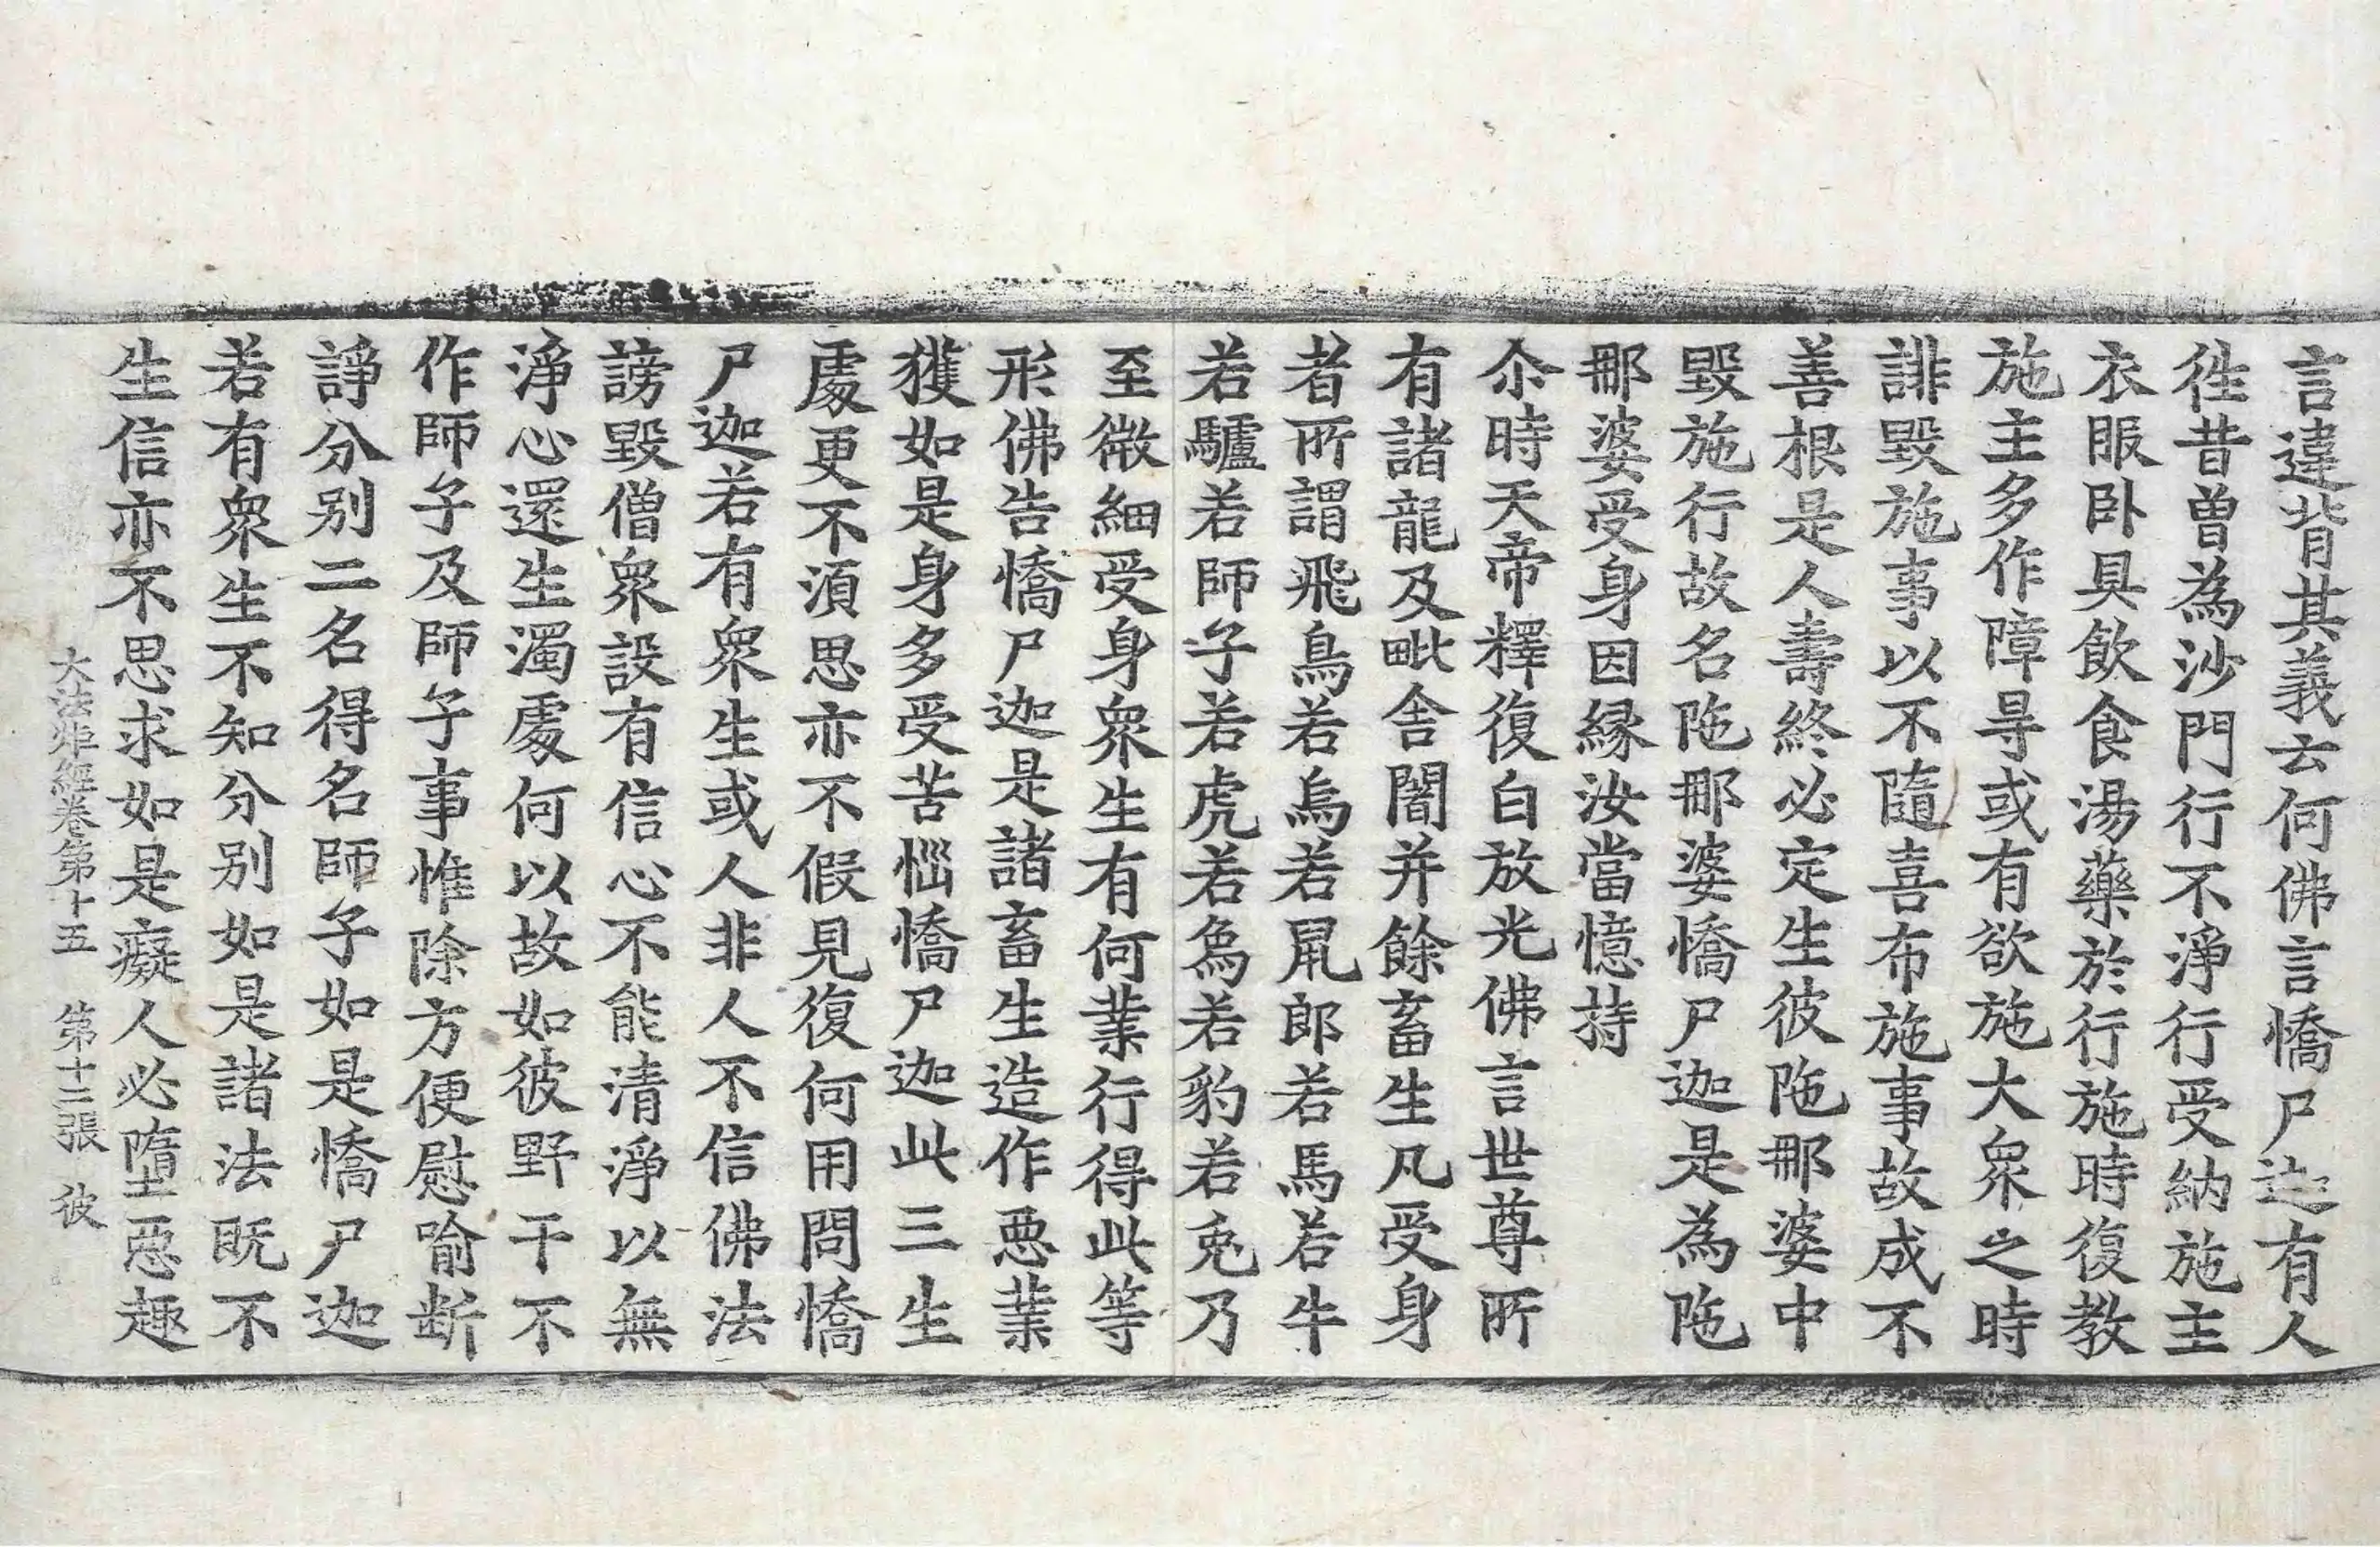 言違背其義云何佛言憍尸迦有人
徃昔曽為沙門行不淨行受納施主
衣服卧具飲食湯藥於行施時復教
施主多作障㝵或有欲施大衆之時
誹毀施事以不隨喜布施事故成不
善根是人壽終必定生彼陁那婆中
毀施行故名陁那婆憍尸迦是為陁
那婆受身因縁汝當憶持
尒時天帝釋復白放光佛言世尊所
有諸龍及毗舍闍并餘畜生凡受身
者所謂飛鳥若烏若鼠郎若馬若牛
若驢若師子若虎若為若豹若兎乃
至微細受身衆生有何業行得此等
形佛告憍尸迦是諸畜生造作悪業
獲如是身多受苦惱憍尸迦此三生
處更不湏思亦不假見復何用問憍
尸迦若有衆生或人非人不信佛法
謗毀僧衆設有信心不能清淨以無
淨心還生濁處何以故如彼野干不
作師子及師子事惟除方便慰喻断
諍分别二名得名師子如是憍尸迦
若有衆生不知分别如是諸法既不
生信亦不思求如是癡人必墮悪趣
大法炬經卷第十五 第十三張 彼